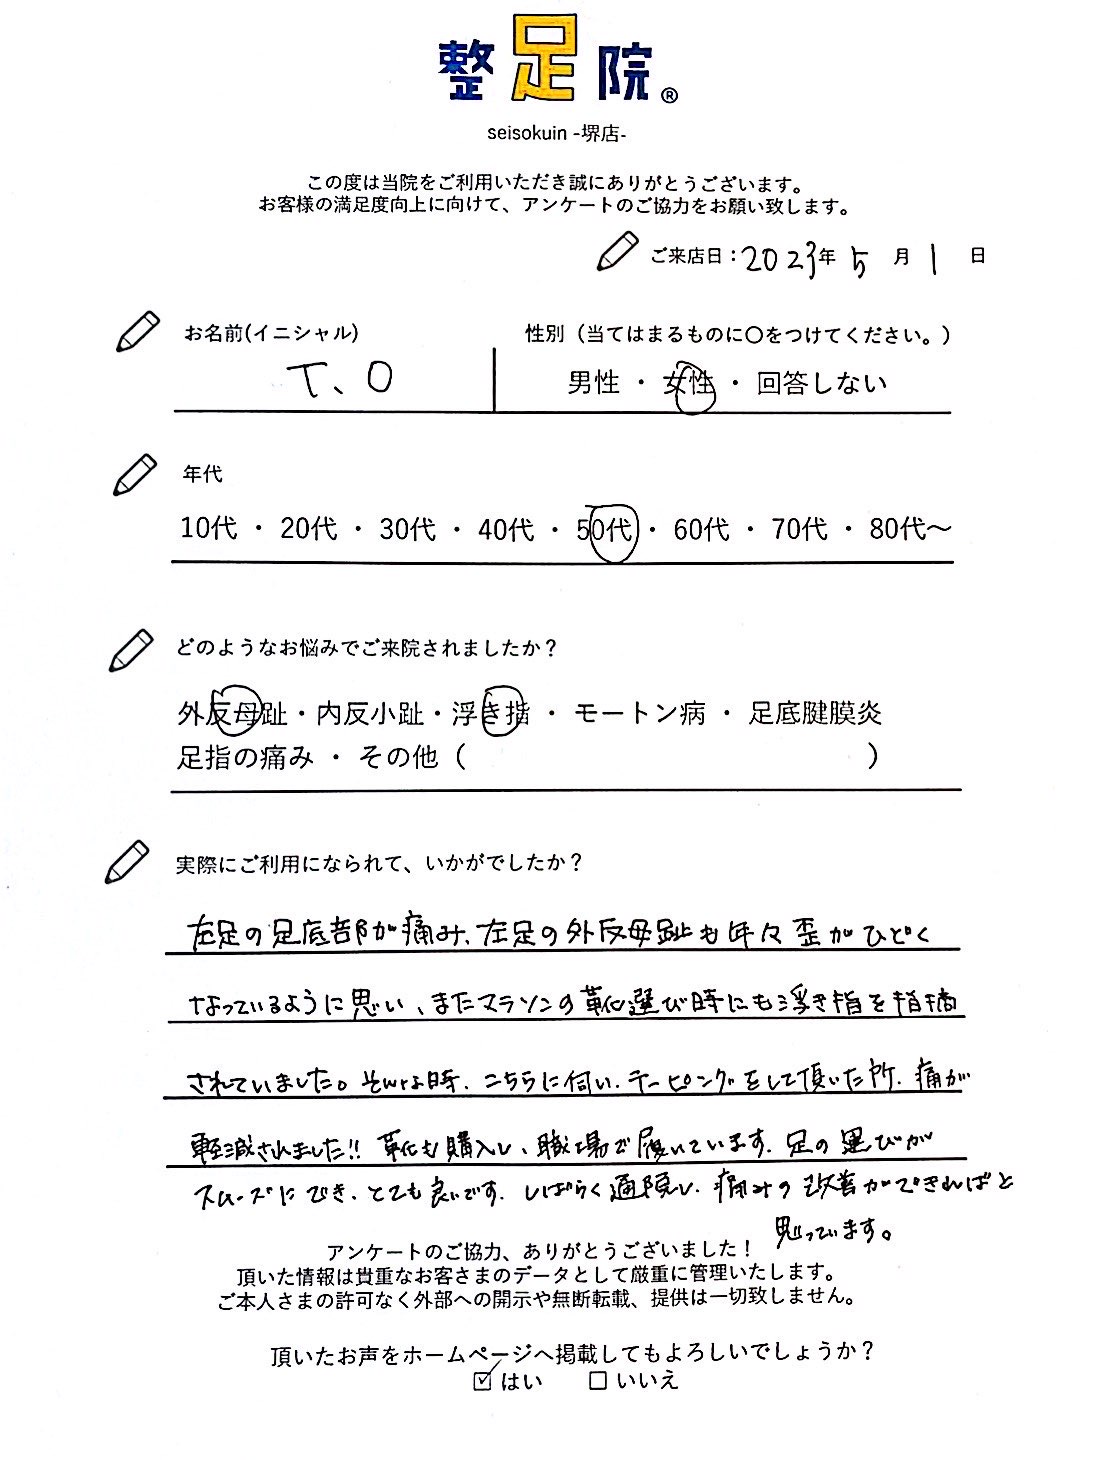 整足院®
seisokuin -堺店-
この度は当院をご利用いただき誠にありがとうございます。
お客様の満足度向上に向けて、アンケートのご協力をお願い致します。
ご来店日：2023年 5 月 1 日
お名前(イニシャル)
性別（当てはまるものに〇をつけてください。）
T、O
男性 ・ 女性 ・ 回答しない
年代
10代 ・ 20代 ・ 30代 ・ 40代 ・ 50代 ・ 60代 ・ 70代 ・ 80代〜
どのようなお悩みでご来院されましたか？
外反母趾・内反小趾・浮き指 ・ モートン病 ・ 足底腱膜炎
足指の痛み ・ その他（　　　）
実際にご利用になられて、いかがでしたか？
左足の足底部が痛み、左足の外反母趾も年々歪がひどく
なっているように思い、またマラソンの靴選び時にも浮き指を指摘
されていました。そんな時、こちらに伺い、テーピングをして頂いた所、痛が
軽減されました!! 靴も購入し、職場で履いています。足の運びが
スムーズにでき、とても良いです。しばらく通院し、痛みの改善ができればと
思っています。
アンケートのご協力、ありがとうございました！
頂いた情報は貴重なお客さまのデータとして厳重に管理いたします。
ご本人さまの許可なく外部への開示や無断転載、提供は一切致しません。
頂いたお声をホームページへ掲載してもよろしいでしょうか？
☑はい ☐いいえ